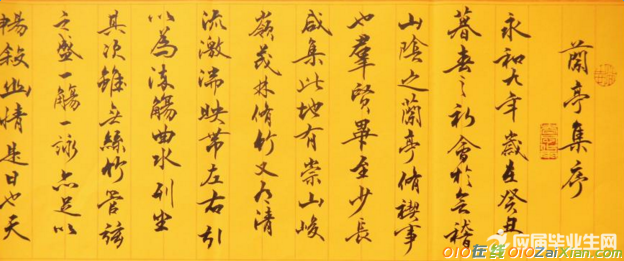 蘭亭集序
永和九年歲在癸丑
暮春之初會於會稽
山陰之蘭亭脩禊事
也羣賢畢至少長
咸集此地有崇山峻
嶺茂林脩竹又有清
流激湍映帶左右引
以為流觴曲水列坐
其次雖無絲竹管弦
之盛一觴一詠亦足以
暢敘幽情是日也天
应届毕业生网
O1O在线 O1OZaiXian.com